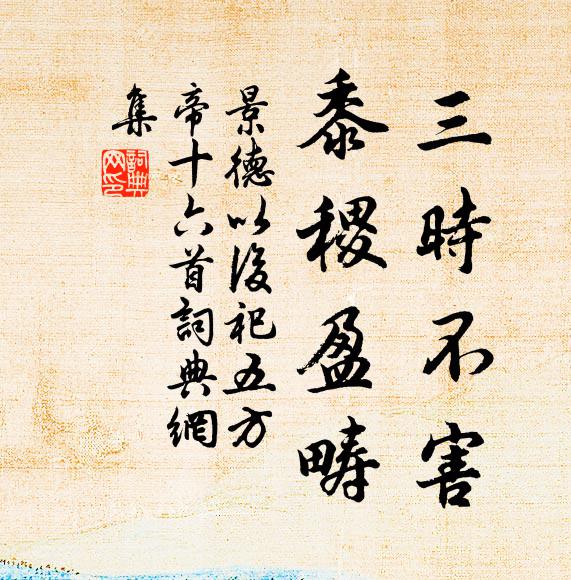 三時不害
黍稷盈疇
景德以後祀五方
帝十六首詞典網
集
詞典網印